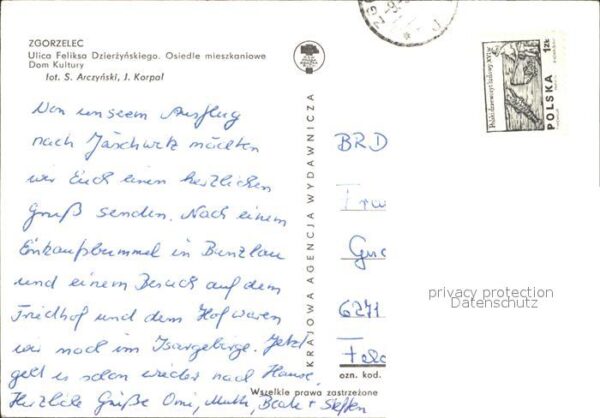 ZGORZELEC
Ulica Feliksa Dzierżyńskiego. Osiedle mieszkaniowe
Dom Kultury
fot. S. Arczyński, J. Korpal
Von unserm Ausflug
nach Jäschwitz möchten
wir Euch einen herzlichen
Gruß senden. Nach einem
Einkaufsbummel in Bunzlau
und einem Besuch auf dem
Friedhof und dem Hof waren
wir noch im Isargebirge. Jetzt
geht es schon wieder nach Hause.
Herzliche Grüße Omi, Mutti, Beate + Steffen
KRAJOWA AGENCJA WYDAWNICZA
POLSKA
1 ZŁ
BRD
6271
ozn. kod.
Wszelkie prawa zastrzeżone
privacy protection
Datenschutz